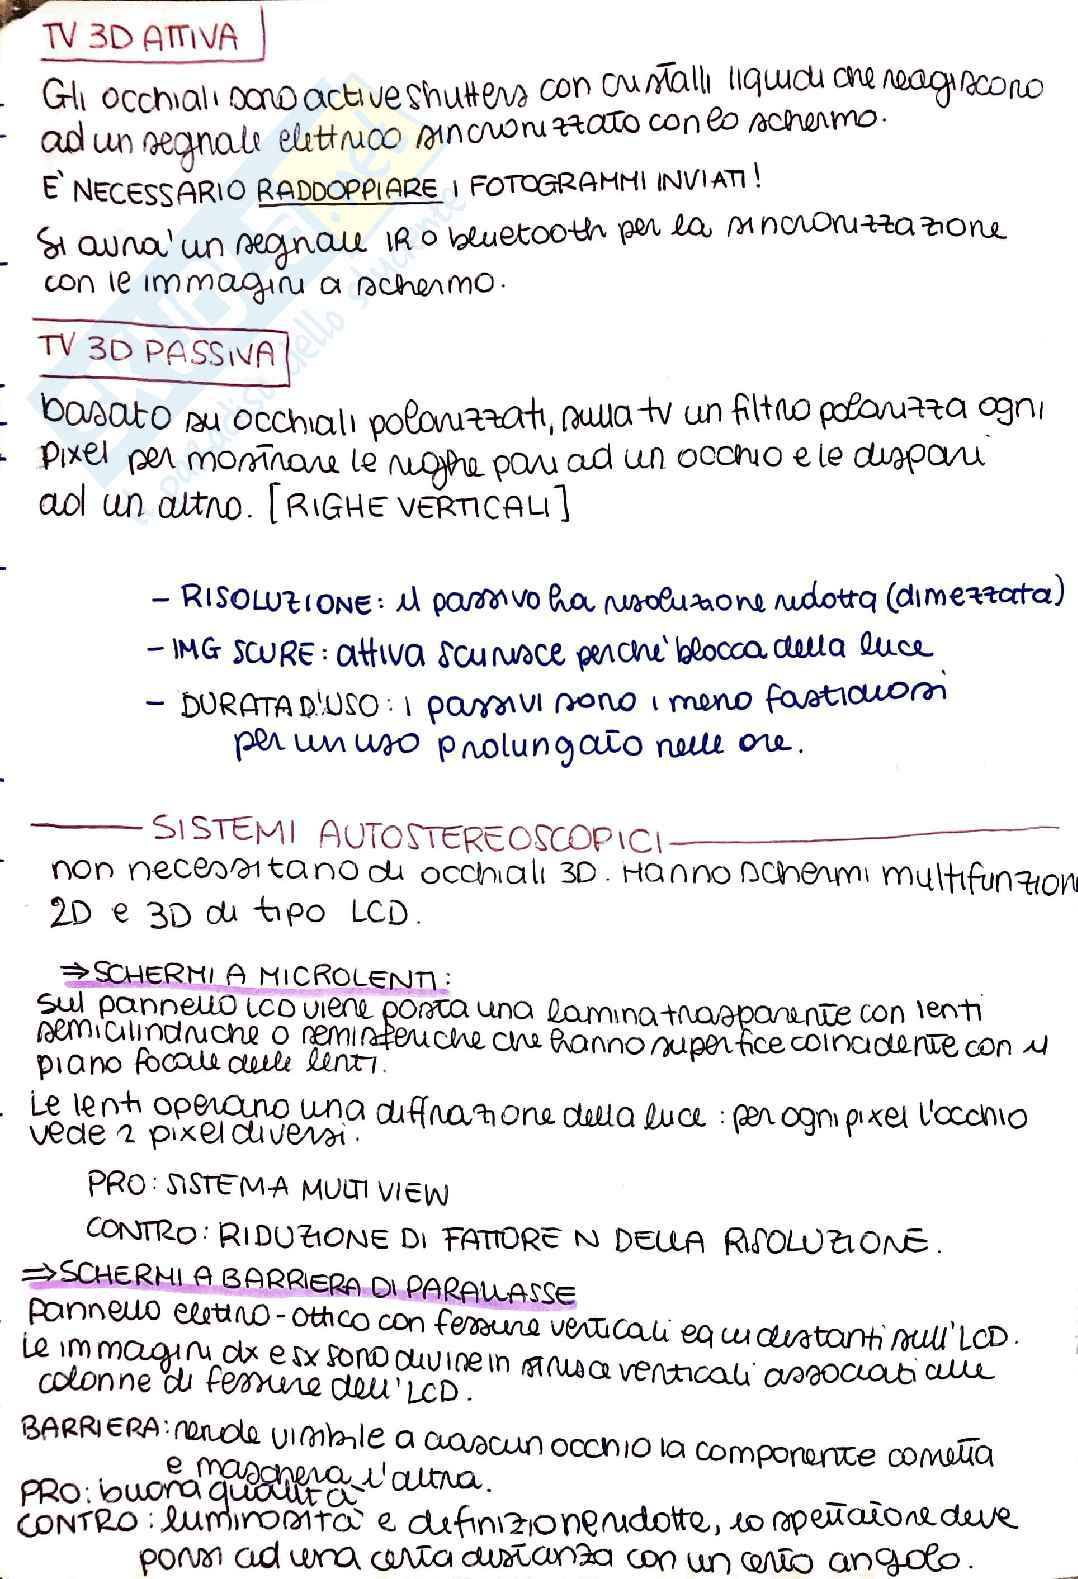 TV 3D ATTIVA
Gli occhiali sono active shutters con cristalli liquidi che reagiscono
ad un segnale elettrico sincronizzato con lo schermo.
E' NECESSARIO RADDOPPIARE I FOTOGRAMMI INVIATI!
Si avra' un segnale IR o bluetooth per la sincronizzazione
con le immagini a schermo.
TV 3D PASSIVA
basato su occhiali polarizzati, sulla tv un filtro polarizza ogni
pixel per mostrare le righe pari ad un occhio e le dispari
ad un altro. [RIGHE VERTICALI]
- RISOLUZIONE: il passivo ha risoluzione ridotta (dimezzata)
- IMG SCURE: attiva scurisce perche' blocca della luce
- DURATA D'USO: i passivi sono i meno fastidiosi
per un uso prolungato nelle ore.
SISTEMI AUTOSTEREOSCOPICI
non necessitano di occhiali 3D. Hanno schermi multifunzion
2D e 3D di tipo LCD.
⇒ SCHERMI A MICROLENTI:
Sul pannello LCD viene posta una lamina trasparente con lenti
semicilindriche o semisferiche che hanno superfice coincidente con il
piano focale delle lenti.
Le lenti operano una diffrazione della luce: per ogni pixel l'occhio
vede 2 pixel diversi.
PRO: SISTEMA MULTI VIEW
CONTRO: RIDUZIONE DI FATTORE N DELLA RISOLUZIONE.
⇒ SCHERMI A BARRIERA DI PARALLASSE
Pannello elettro-ottico con fessure verticali equidistanti sull'LCD.
Le immagini dx e sx sono divise in strisce verticali associati alle
colonne di fessure dell'LCD.
BARRIERA: rende visibile a ciascun occhio la componente corretta
e maschera l'altra.
PRO: buona qualità
CONTRO: luminosità e definizione ridotte, lo spettatore deve
porsi ad una certa distanza con un certo angolo.